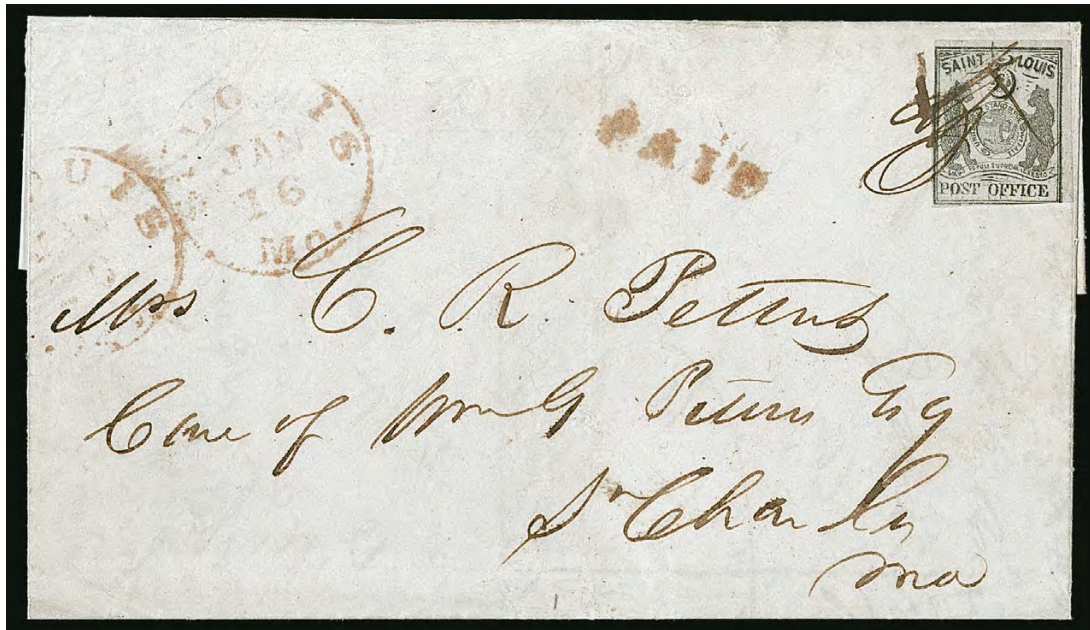 SAINT LOUIS
5
POST OFFICE
PAID
ST. LOUIS
JAN
16
MO.
UIS
Mrs C. R. Pettus
Care of Wm G Pettus Esq
St Charles
Mo